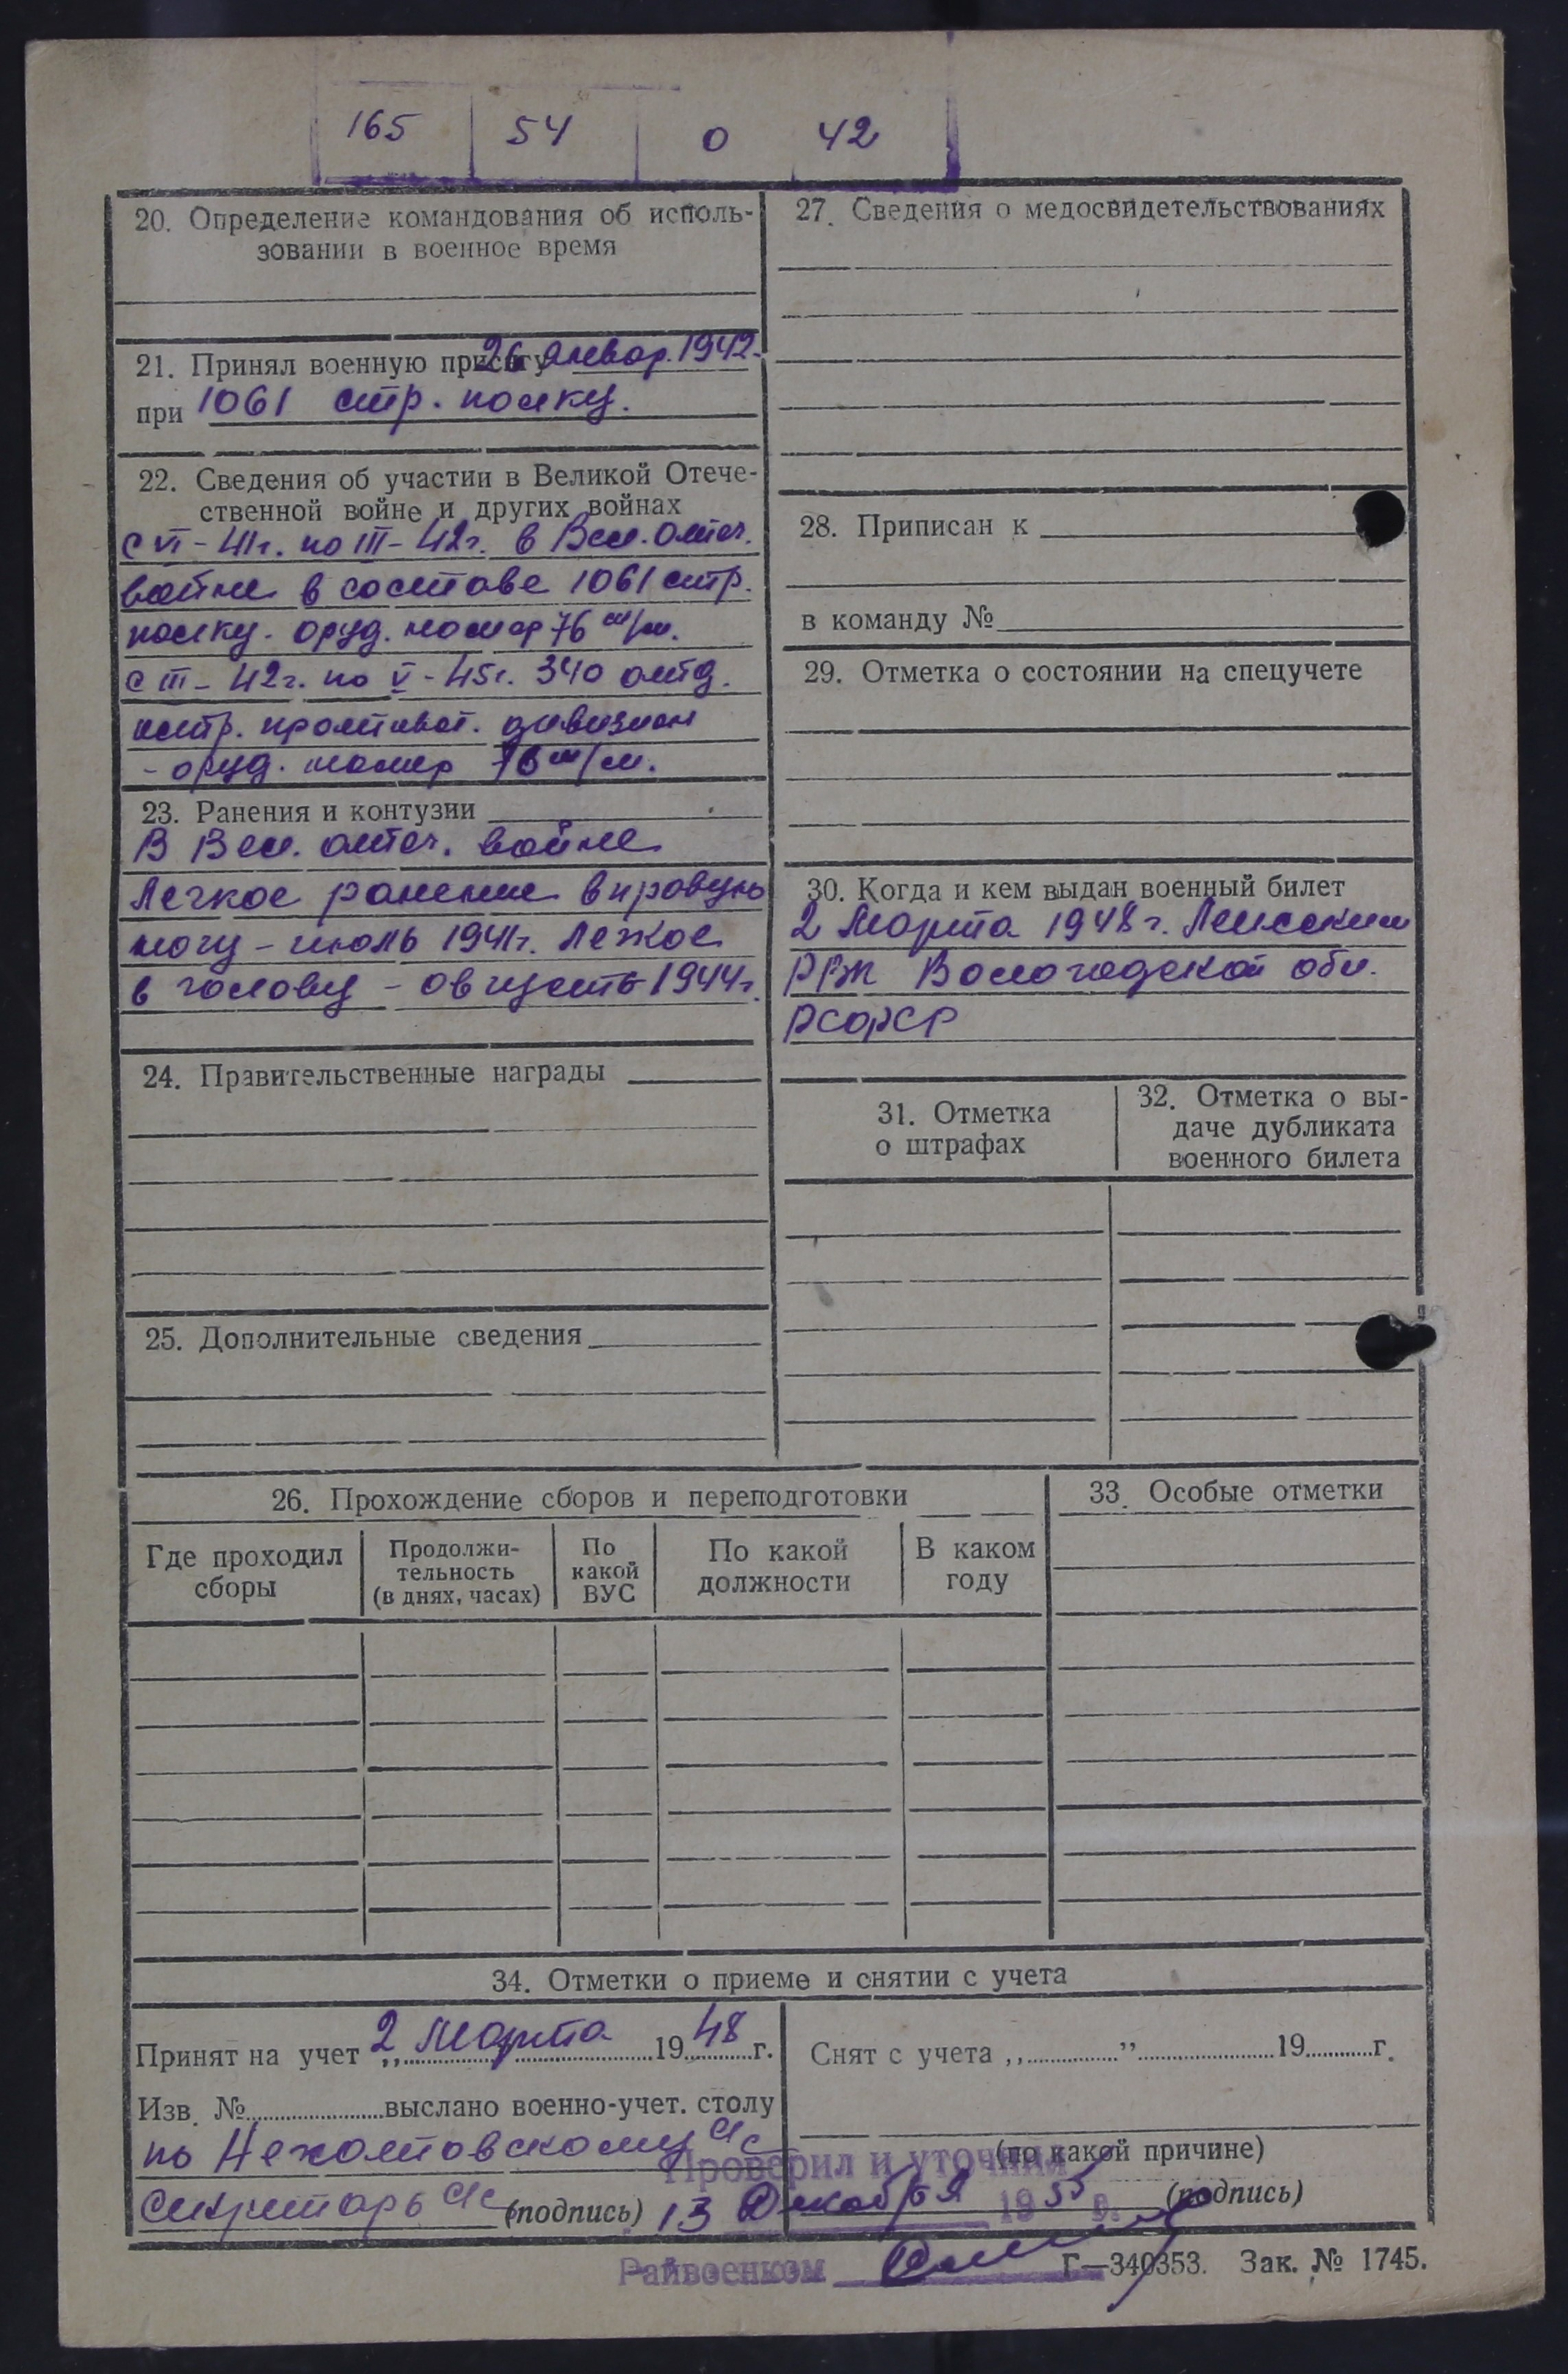 165 54 0 42
20. Определение командования об исполь-
зовании в военное время
21. Принял военную присягу 26 январ. 1942.
при 1061 стр. полку.
22. Сведения об участии в Великой Отече-
ственной войне и других войнах
с VI – 41г. по III – 42г. в Вел. отеч.
войне в составе 1061 стр.
полку. оруд. номер 76 м/м.
с III – 42г. по V – 45г. 340 отд.
истр. противот. дивизион
- оруд. номер 76 м/м.
23. Ранения и контузии
В Вел. отеч. войне
Легкое ранение в правую
ногу – июль 1941г. Легкое
в голову – август 1944г.
24. Правительственные награды
25. Дополнительные сведения
27. Сведения о медосвидетельствованиях
28. Приписан к
в команду №
29. Отметка о состоянии на спецучете
30. Когда и кем выдан военный билет
2 Марта 1948 г.
РВК Вологодской обл.
РСФСР
31. Отметка
о штрафах
32. Отметка о вы-
даче дубликата
военного билета
26. Прохождение сборов и переподготовки
Где проходил
сборы
Продолжи-
тельность
(в днях, часах)
По
какой
ВУС
По какой
должности
В каком
году
33. Особые отметки
34. Отметки о приеме и снятии с учета
Принят на учет „ 2 Марта 1948 г.
Изв. № выслано военно-учет. столу
по
Секретарь (подпись)
Снят с учета „ ” 19 г.
(по какой причине)
(подпись)
Проверил и уточнил
13 Декабря 1955 г.
Райвоенком
Г—340353. Зак. № 1745.